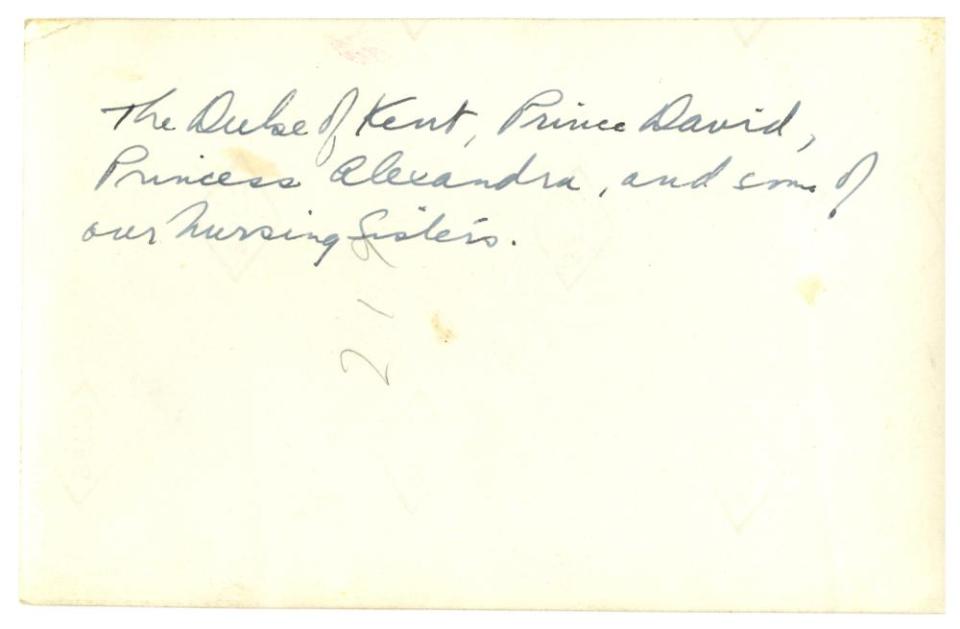 The Duke of Kent, Prince David,
Princess Alexandra, and some of
our Nursing Sisters.
21